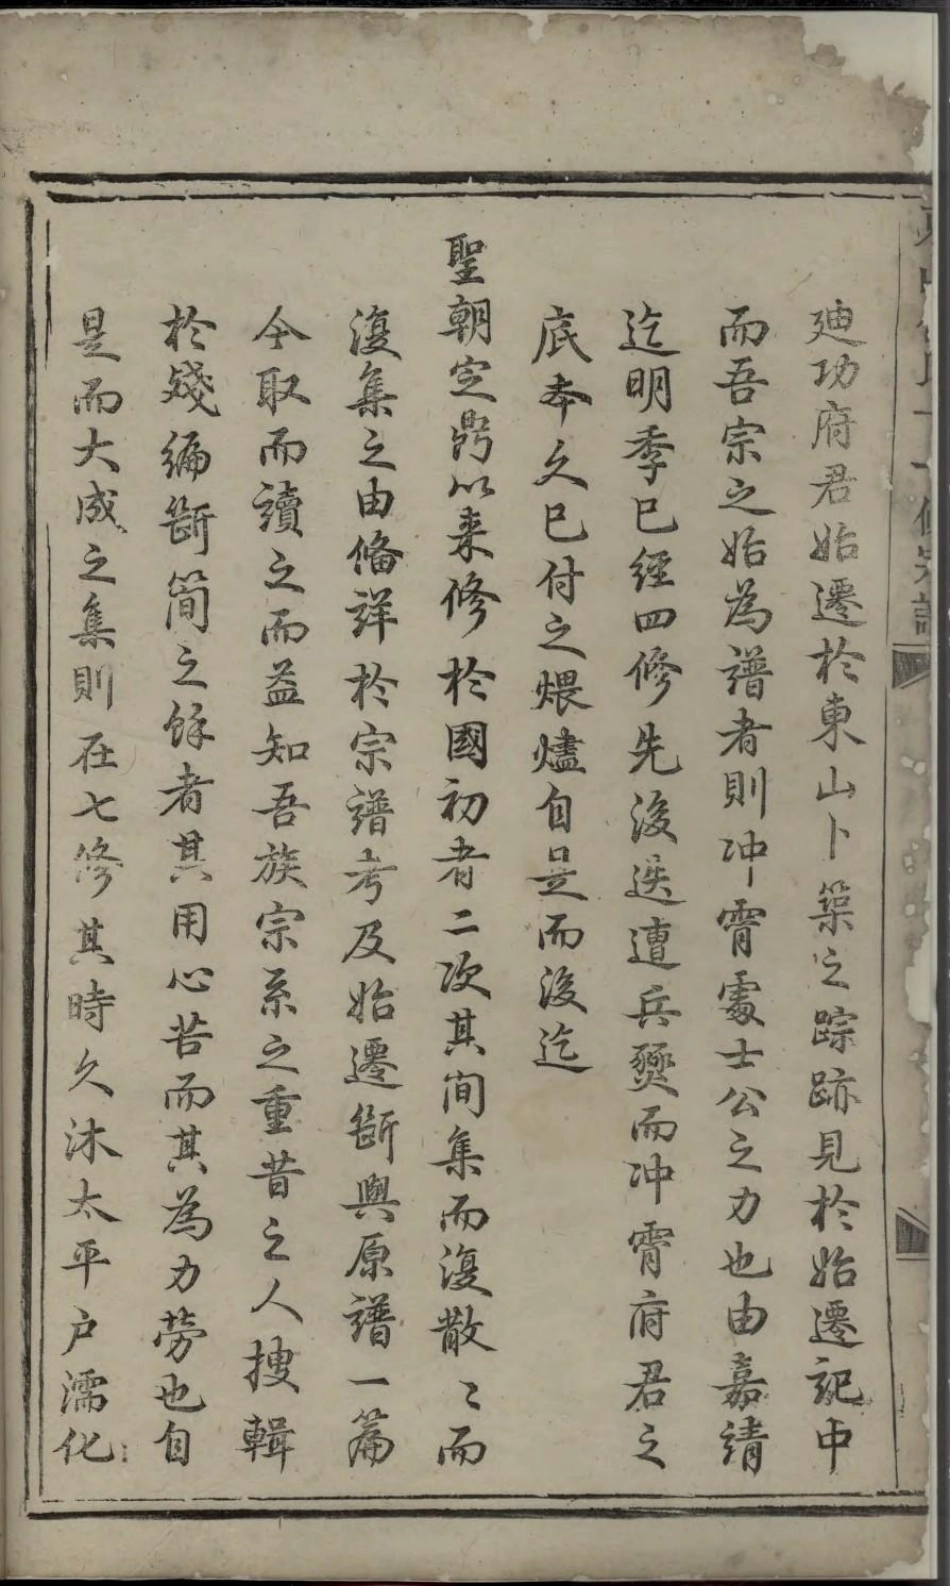 廸功府君始遷於東山卜築之踪跡見於始遷記中
而吾宗之始為譜者則冲霄處士公之力也由嘉靖
迄明季已經四修先後迭遭兵燹而冲霄府君之
底夲久已付之煨燼自是而後迄
聖朝定鼎以来修於國初者二次其间集而復散〻而
復集之由偹詳於宗譜考及始遷斷與原譜一篇
今取而讀之而益知吾族宗系之重昔之人搜輯
於殘編斷简之餘者其用心苦而其為力劳也自
是而大成之集則在七修其時久沐太平户濡化